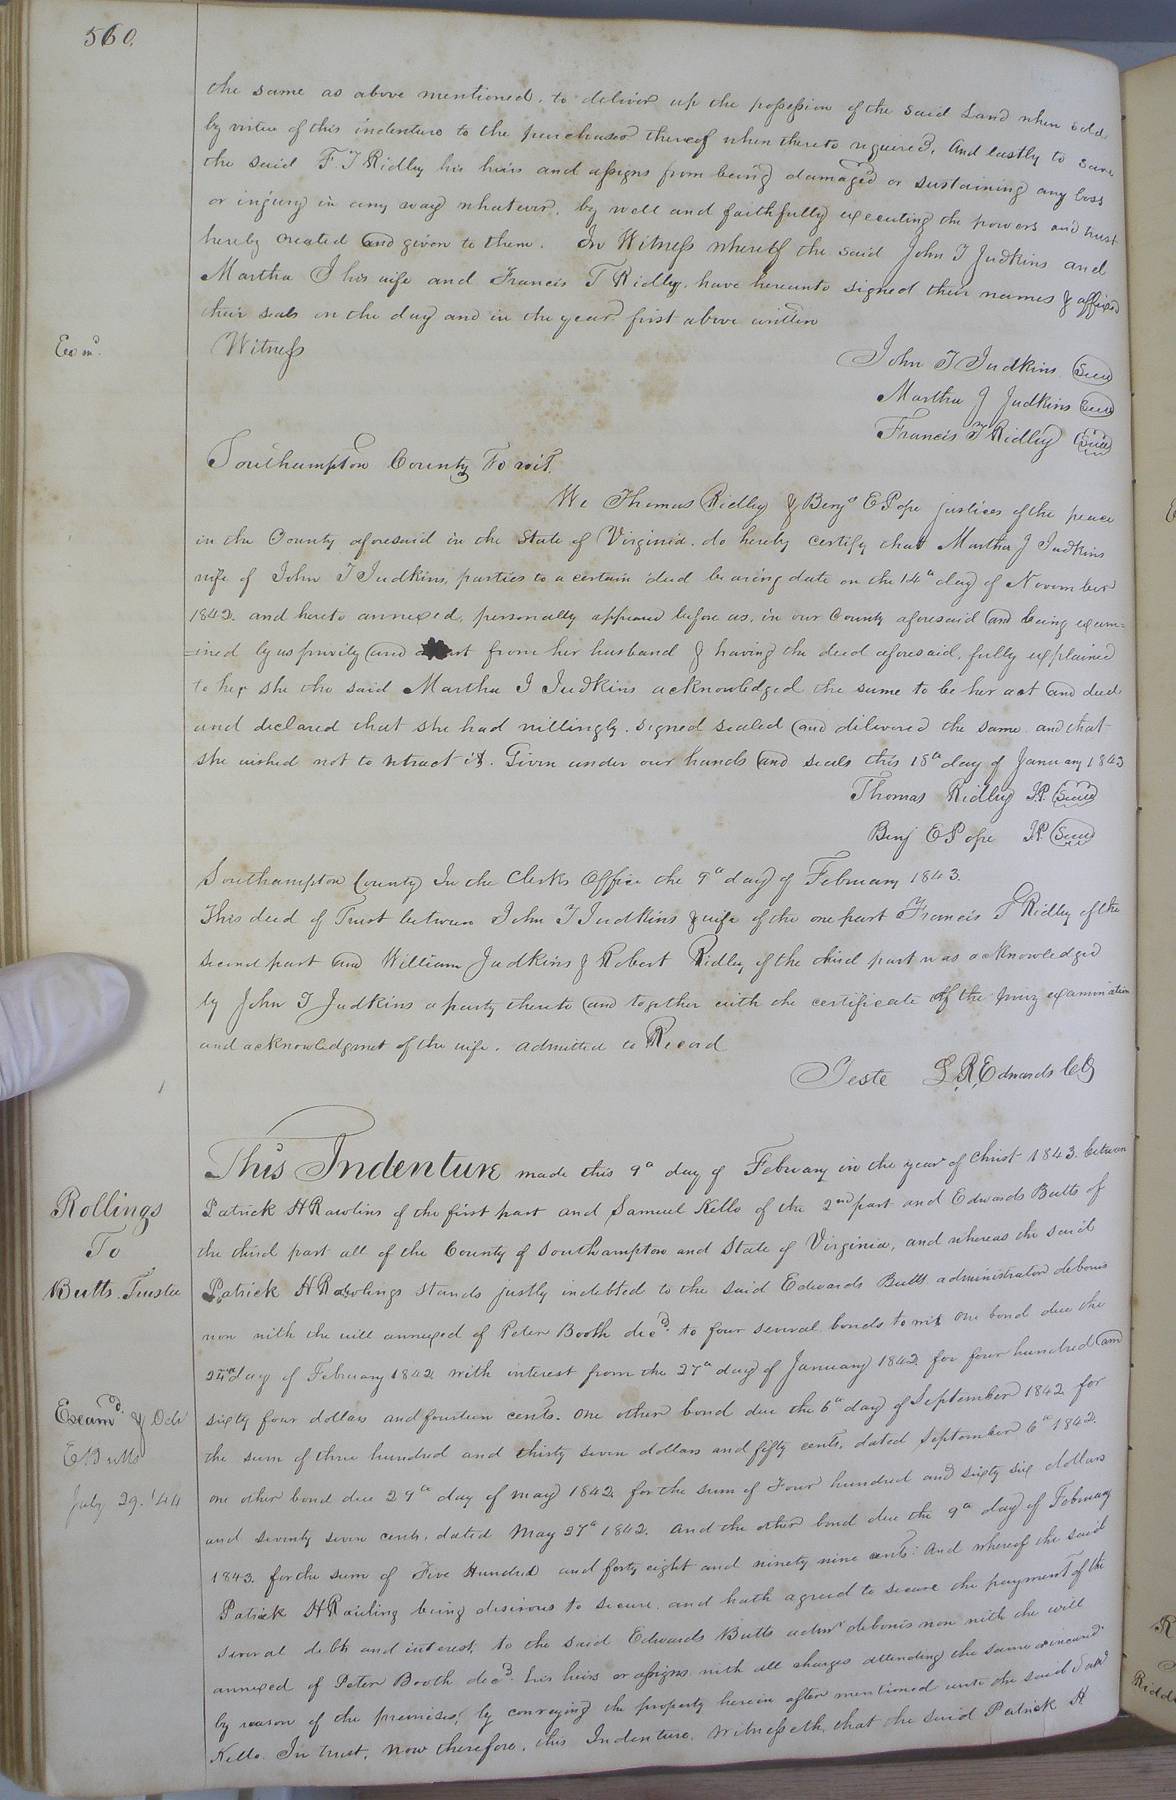 560.
the same as above mentioned. to deliver up the possession of the said Land when sold
by virtue of this indenture to the purchaser thereof when thereto requered. And lastly to save
the said F. T Ridley his heirs and assigns from being damaged or sustaining any loss
or injury in any way whatever. by well and faithfully executing the powers and trust
hereby created and given to them. In Witness whereof the said John T Judkins and
Martha J his wife and Francis T Ridley. have hereunto signed their names & affixed
their seals on the day and in the year first above written
Exmd.
Witness
John T Judkins (Seal)
Martha J Judkins (Seal)
Francis T Ridley (Seal)
Southampton County To wit.
We Thomas Ridley & Benj. E Pope justices of the peace
in the County aforesaid in the State of Virginia. do hereby certify that Martha J Judkins
wife of John T Judkins, parties to a certain deed bearing date on the 14th day of November
1842. and hereto annexed, personally appeared before us, in our County aforesaid and being exam=
=ined by us privily and apart from her husband & having the deed aforesaid, fully explained
to her she the said Martha J Judkins acknowledged the same to be her act and deed
and declared that she had willingly. signed sealed and delivered the same and that
she wished not to retract it. Given under our hands and seals this 18th day of January 1843
Thomas Ridley J.P. (Seal)
Benj E Pope J.P. (Seal)
Southampton County In the Clerks Office the 9th day of February 1843.
This deed of Trust between John T Judkins & wife of the one part Francis T Ridley of the
second part and William Judkins & Robert Ridley of the third part was acknowledged
by John T Judkins a party thereto and together with the certificate of the privy examination
and acknowledgment of the wife. admitted to Record
Teste L. R. Edwards
This Indenture made this 9th day of February in the year of Christ 1843. between
Rollings
To
Butts. Trustee
Patrick H Rawlins of the first part and Samuel Kello of the 2nd part and Edwards Butts of
the third part all of the County of Southampton and State of Virginia, and whereas the said
Patrick H Rawlings stands justly indebted to the said Edwards Butts administrator debonis
non with the will annexed of Peter Booth decd. to four several bonds to wit One bond due the
day of February 1842 with interest from the 27th day of January 1842 for four hundred and
Examd. & Deld
E Butts
July 29. '44
sixty four dollars and fourteen cents. One other bond due the 6th day of September 1842 for
the sum of three hundred and thirty seven dollars and fifty cents, dated September 6th 1842.
one other bond due 29th day of May 1842 for the sum of Four hundred and sixty six dollars
and seventy seven cents, dated May 27th 1842. And the other bond due the 9th day of February
1843. for the sum of Five Hundred and forty eight and ninety nine cents. And whereof the said
Patrick H Rawling being desirous to secure, and hath agreed to secure the payment of the
several debts and interest, to the said Edwards Butts admr debonis non with the will
annexed of Peter Booth decd. his heirs or assigns with all charges attending the same
by reason of the premises, by conveying the property herein after mentioned unto the said Saml
Kello. In trust, now therefore, this Indenture. Witnesseth, that the said Patrick H